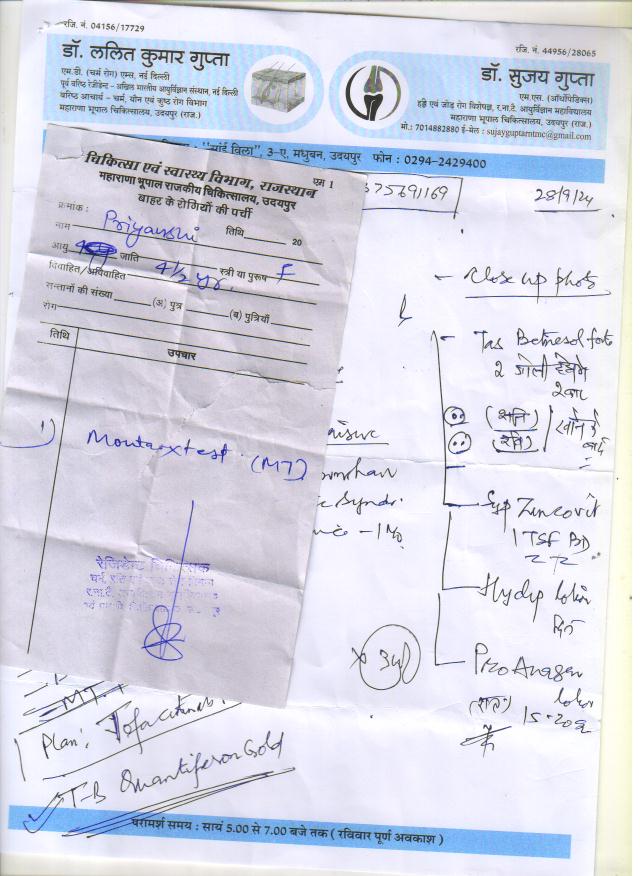 रजि. नं. 04156/17729
डॉ. ललित कुमार गुप्ता
एम.डी. (चर्म रोग) एम्स, नई दिल्ली
पूर्व वरिष्ठ रेजीडेन्ट - अखिल भारतीय आयुर्विज्ञान संस्थान, नई दिल्ली
वरिष्ठ आचार्य - चर्म, यौन एवं कुष्ठ रोग विभाग
महाराणा भूपाल चिकित्सालय, उदयपुर (राज.)
रजि. नं. 44956/28065
डॉ. सुजय गुप्ता
एम.एस. (ऑर्थोपेडिक्स)
हड्डी एवं जोड़ रोग विशेषज्ञ, र.ना.टै. आयुर्विज्ञान महाविद्यालय
महाराणा भूपाल चिकित्सालय, उदयपुर (राज.)
मो.: 7014882880 ई-मेल : sujayguptarntmc@gmail.com
"सांई विला", 3-ए, मधुबन, उदयपुर फोन : 0294-2429400
28/9/24
चिकित्सा एवं स्वास्थ्य विभाग, राजस्थान
एम 1
महाराणा भूपाल राजकीय चिकित्सालय, उदयपुर
बाहर के रोगियों की पर्ची
क्रमांक :
नाम Priyanshi तिथि 20
आयु जाति
विवाहित/अविवाहित 4½ yr. स्त्री या पुरूष F
सन्तानों की संख्या (अ) पुत्र (ब) पुत्रियाँ
रोग
तिथि उपचार
1) Montoux test (MT)
रेजिडेन्ट चिकित्सक
- Close up photo
Tab Betnesol forte
2 गोली हफ्ते
2 बार
(शनि)
(रवि)
खाने के बाद
Syp Zincovit
1 TSF BD
Hydip lotion
दिन
ProAnagen
lotion
(रात)
MT
Plan: Tofacitinib
T-B Quantiferon Gold
परामर्श समय : सायं 5.00 से 7.00 बजे तक ( रविवार पूर्ण अवकाश )